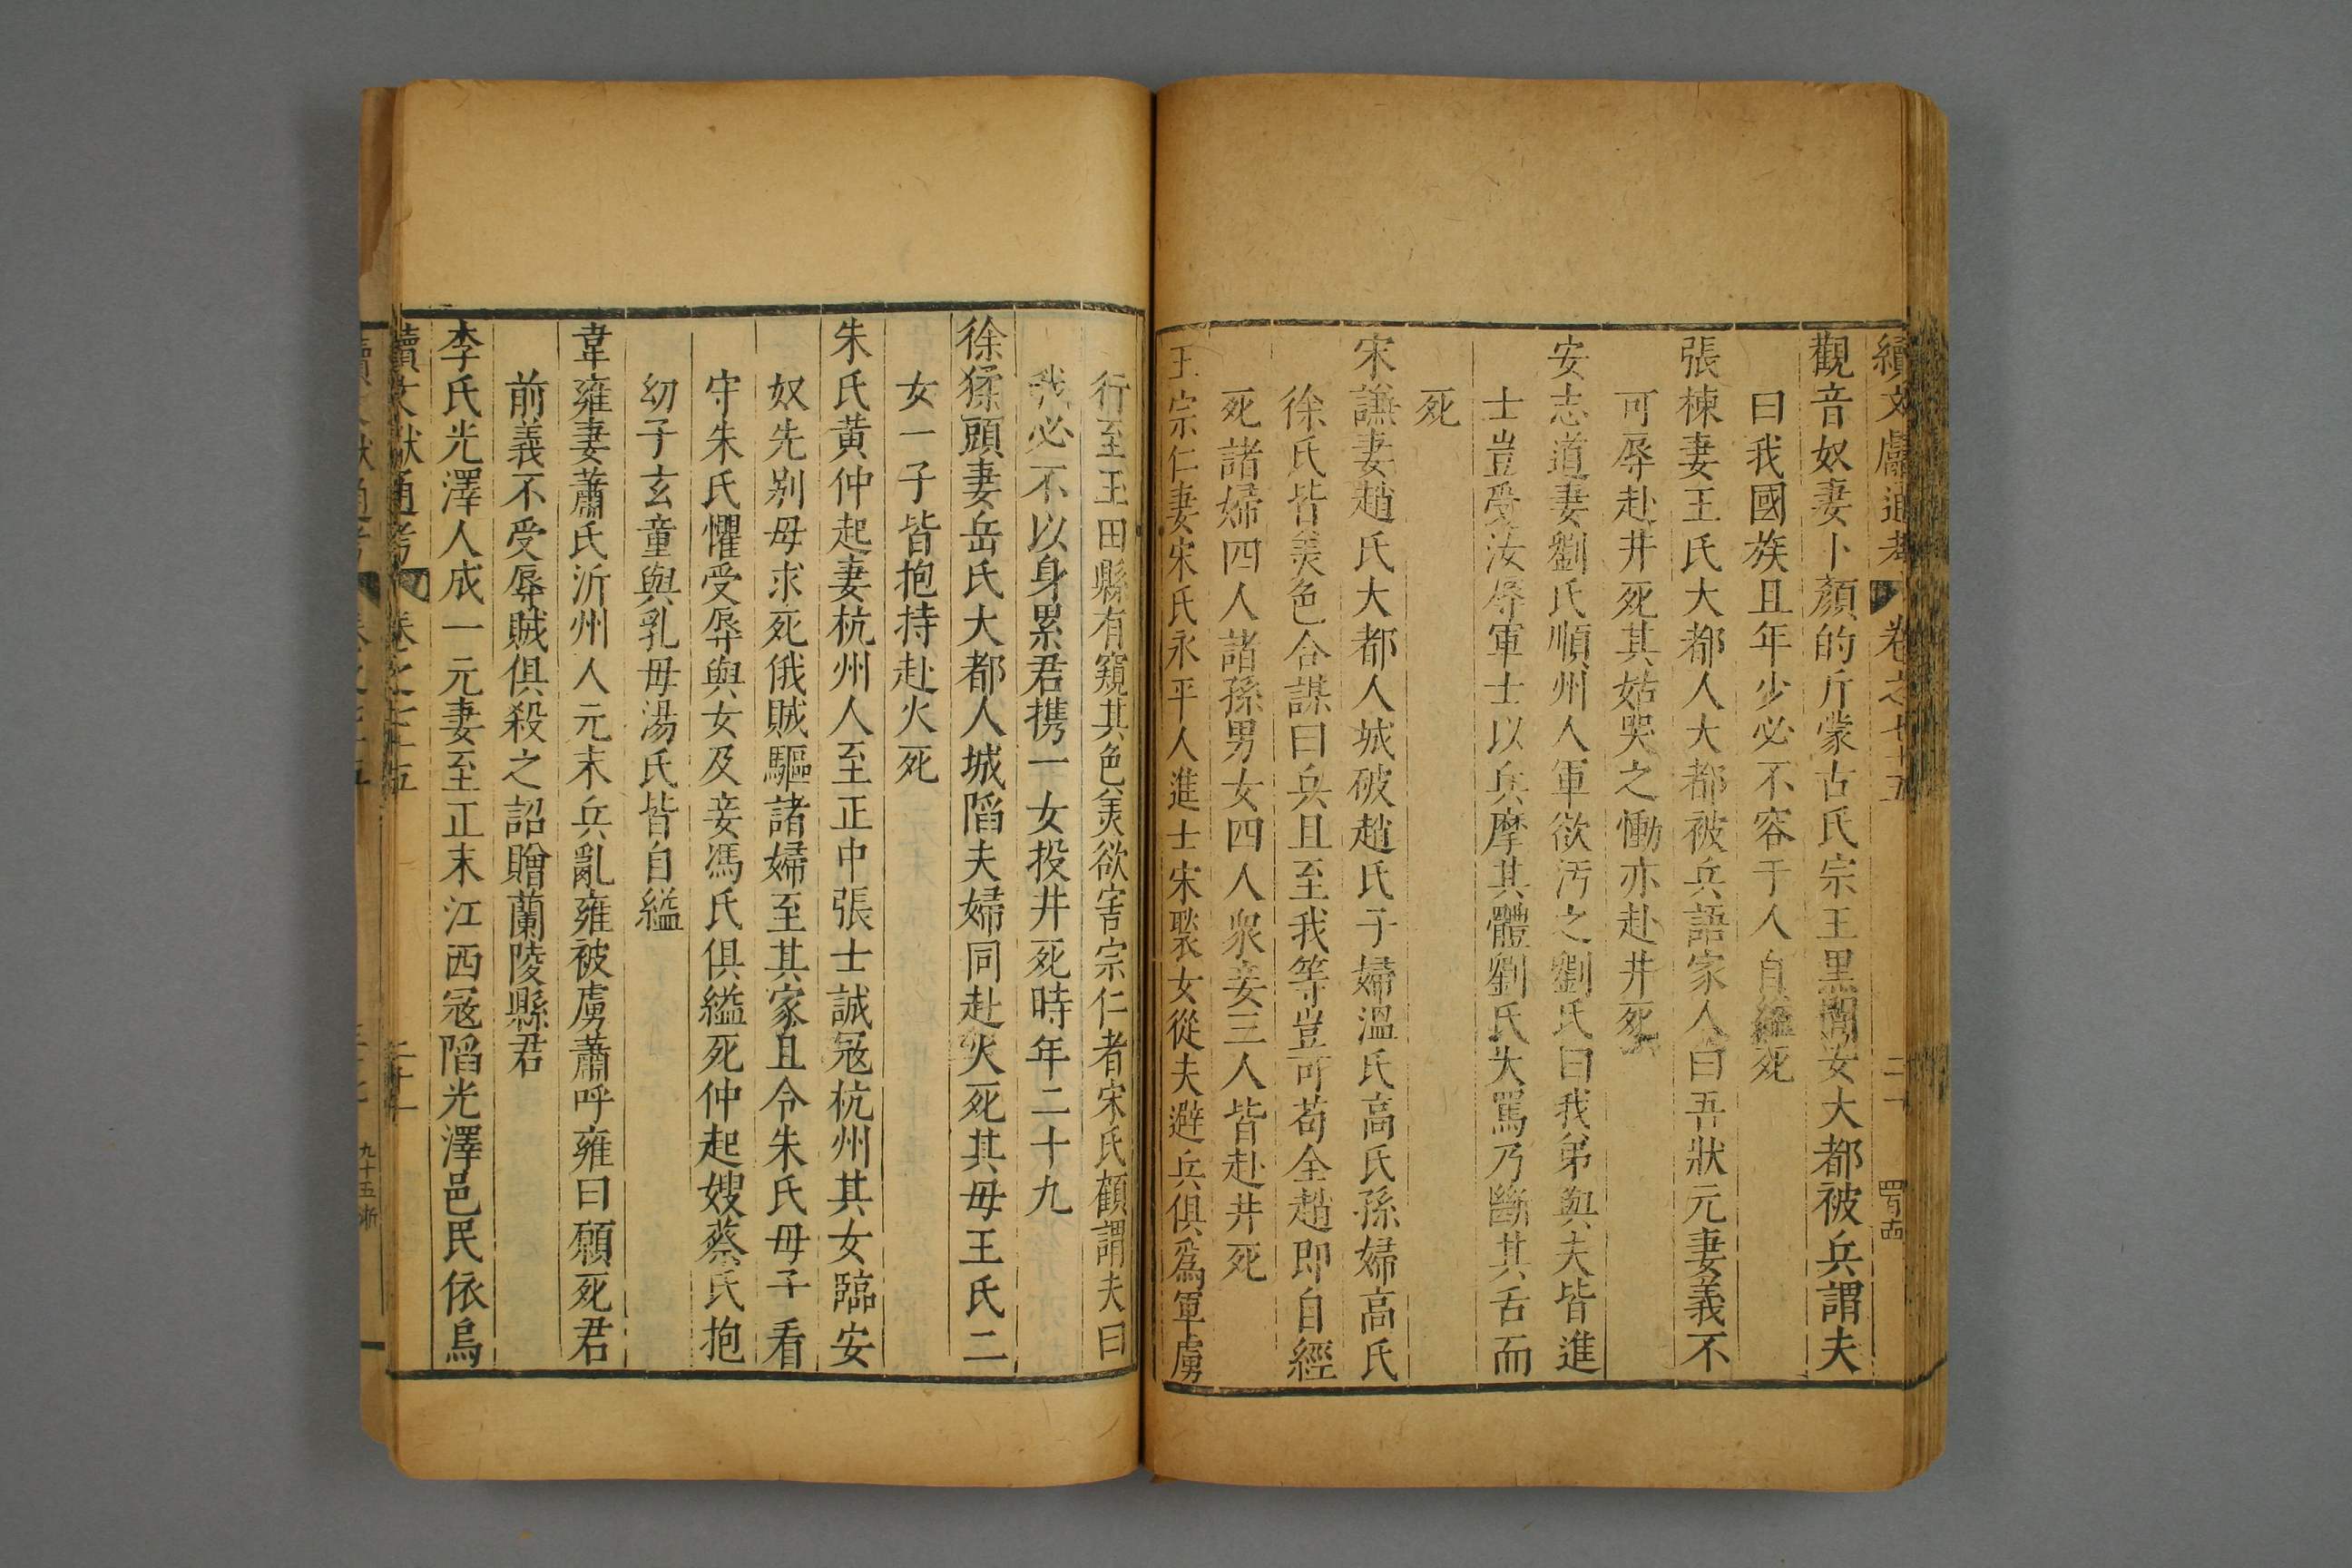 續文獻通考 卷之七十五 二十一
觀音奴妻卜顏的斤蒙古氏宗王黑閭女大都被兵謂夫
曰我國族且年少必不容于人自縊死
張棟妻王氏大都人大都被兵語家人曰吾狀元妻義不
可辱赴井死其姑哭之慟亦赴井死
安志道妻劉氏順州人軍欲汚之劉氏曰我弟與夫皆進
士豈受汝辱軍士以兵摩其體劉氏大罵乃斷其舌而
死
宋謙妻趙氏大都人城破趙氏子婦溫氏高氏孫婦高氏
徐氏皆美色合謀曰兵且至我等豈可苟全趙卽自經
死諸婦四人諸孫男女四人衆妾三人皆赴井死
王宗仁妻宋氏永平人進士宋褧女從夫避兵俱爲軍虜
行至玉田縣有窺其色美欲害宗仁者宋氏顧謂夫曰
我必不以身累君携一女投井死時年二十九
徐猱頭妻岳氏大都人城陷夫婦同赴火死其母王氏二
女一子皆抱持赴火死
朱氏黃仲起妻杭州人至正中張士誠寇杭州其女臨安
奴先别母求死俄賊驅諸婦至其家且令朱氏母子看
守朱氏懼受辱與女及妾馮氏俱縊死仲起嫂蔡氏抱
幼子玄童與乳母湯氏皆自縊
韋雍妻蕭氏沂州人元末兵亂雍被虜蕭呼雍曰願死君
前義不受辱賊俱殺之詔贈蘭陵縣君
李氏光澤人成一元妻至正末江西寇陷光澤邑民依烏
續文獻通考 卷之七十五 二十一
九十五 浙